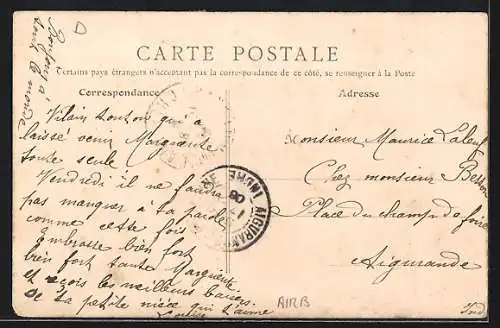 Bonjour à
tout le monde
CARTE POSTALE
Certains pays étrangers n'acceptant pas la correspondance de ce côté, se renseigner à la Poste
Correspondance
Adresse
Vilain tonton qui a
laissé venir Marguerite
toute seule
Vendredi il ne faudra
pas manquer à ta parole
comme cette fois
Embrasse bien fort
bien fort tante Marguerite
et reçois les meilleurs baisers
de ta petite nièce qui t'aime
Louise
Monsieur Maurice
Chez monsieur
Place du champ de foire
Aigurande
Ind
AIGURANDE
INDRE
08
AIRB